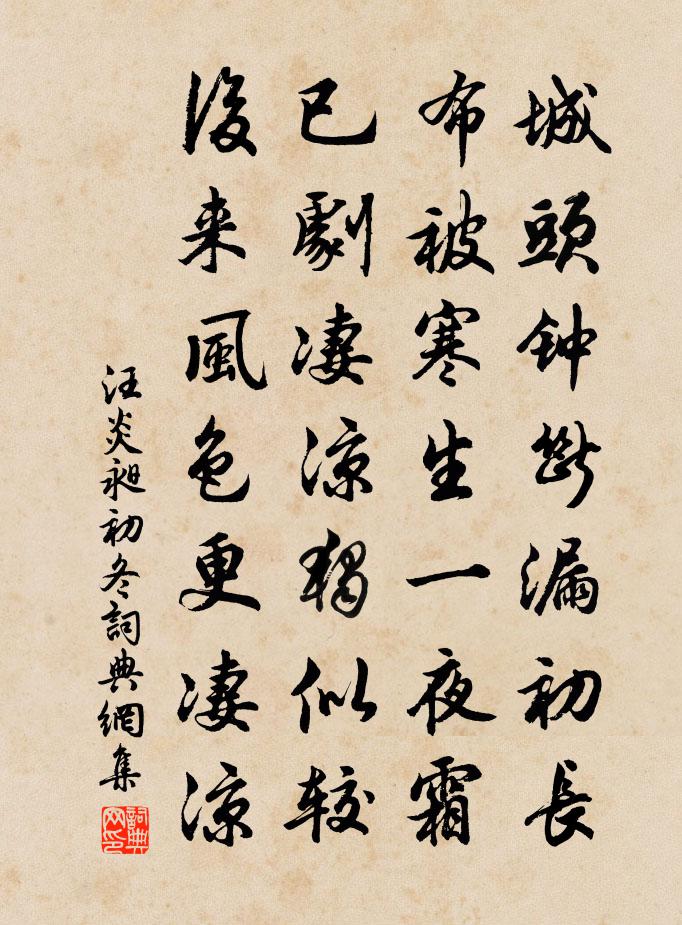 城頭钟斷漏初長
布被寒生一夜霜
已劇凄凉獨似较
後来風色更凄凉
汪炎昶初冬詞典網集
詞典网印